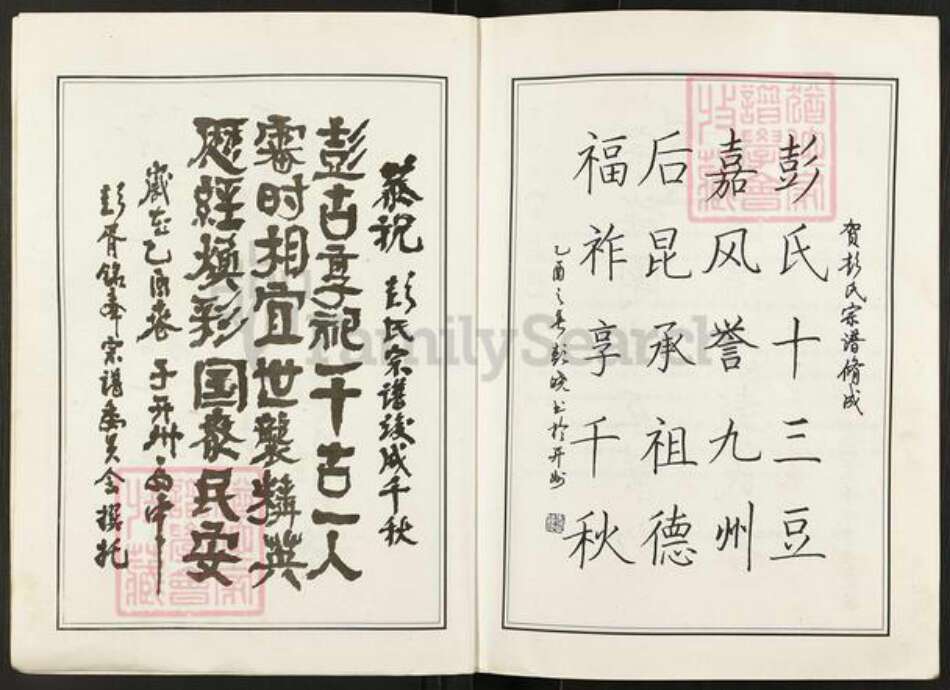 贺彭氏宗谱脩成
彭氏十三豆
嘉风誉九州
后昆承祖德
福祚享千秋
乙酉之春彭晓书於开州
恭祝彭氏宗谱竣成千秋
彭古享祀一千古一人
时相宜世袭精英
历经焕彩国泰民安
岁在乙酉春于开州
彭胥铭峰宗谱委员会撰
FamilySearch